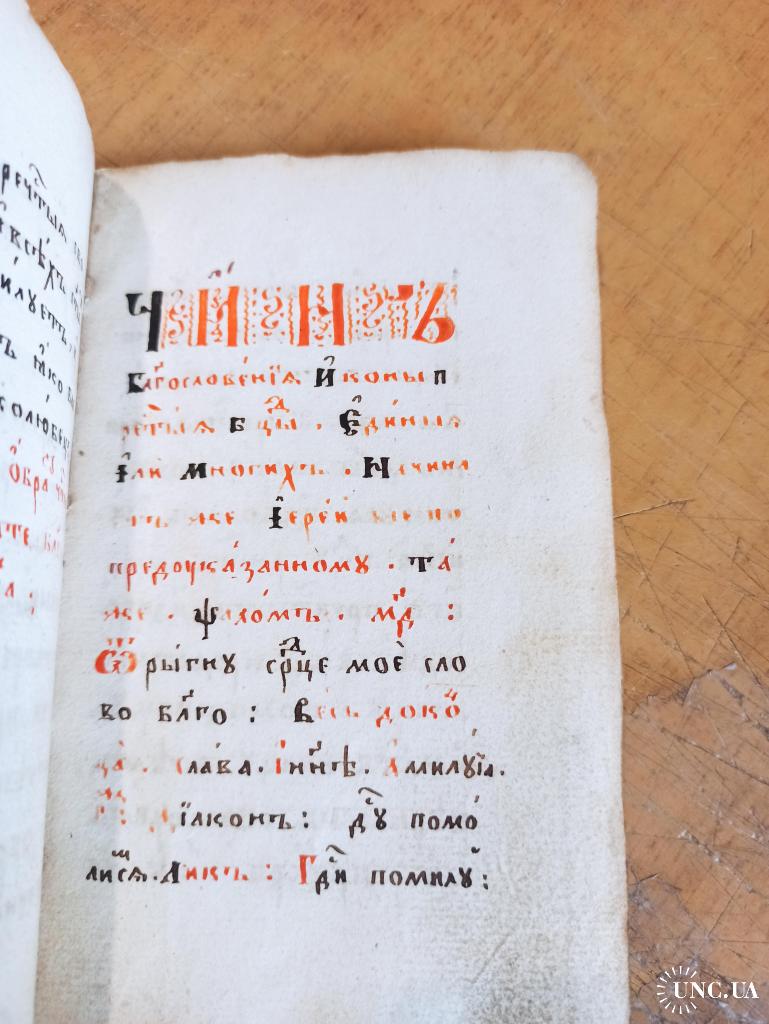 речт҃ыѧ
всѣ́хъ
илꙋетъ
ꙗ҆́кѡ
солюбе
ѻ҆бра
Чи́нъ
Бл҃гословенїѧ И҆коны п
рест҃ы́ѧ Бц҃ды . Е҆ди́ныѧ
И҆лѝ многихъ . Начина
тъ же І҆ере́й по
предоука́занному . та́
же . ѱало́мъ . м҃д :
Ѿры́гнꙋ ср҃дце моѐ сло
во бл҃го : Весь доко́
ца̀ . Слава . И҆ нн҃ѣ . Амилꙋ́їа .
г҃ : Дїѧконъ : дг҃ꙋ помо́
лисѧ . Ликъ : Гд҃и помилꙋ :
UNC.UA